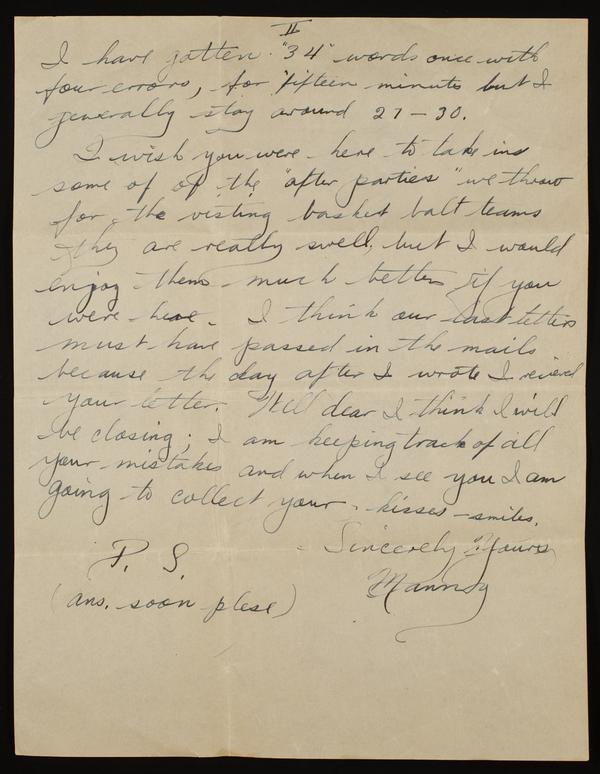 II
I have gotten "34" words once with
four errors, for fifteen minute but I
generally stay around 27 - 30.
I wish you were here to take in
some of of the "after parties" we throw
for the visting basket ball teams
they are really swell, but I would
enjoy them much better if you
were here. I think our last letters
must have passed in the mails
because the day after I wrote I recieved
your letter. Well dear I think I will
be closing; I am keeping track of all
your mistakes and when I see you I am
going to collect your - kisses - smiles.
Sincerely Yours
P. S. Manny
(ans. soon plese)